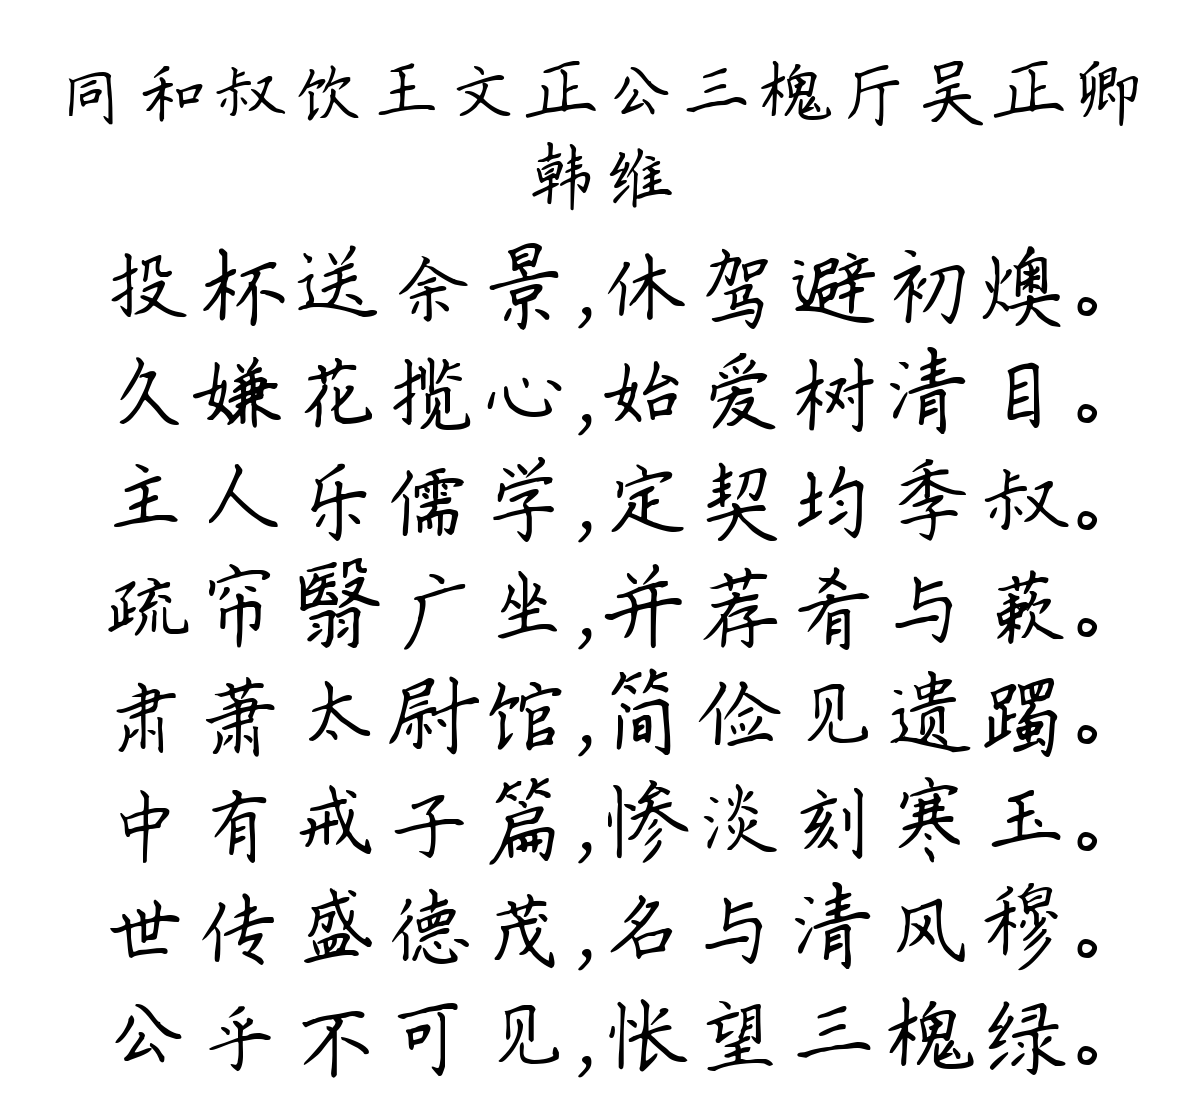 同和叔饮王文正公三槐厅吴正卿
韩维
投杯送余景,休驾避初燠。
久嫌花揽心,始爱树清目。
主人乐儒学,定契均季叔。
疏帘翳广坐,并荐肴与蔌。
肃萧太尉馆,简俭见遗躅。
中有戒子篇,惨淡刻寒玉。
世传盛德茂,名与清风穆。
公乎不可见,怅望三槐绿。